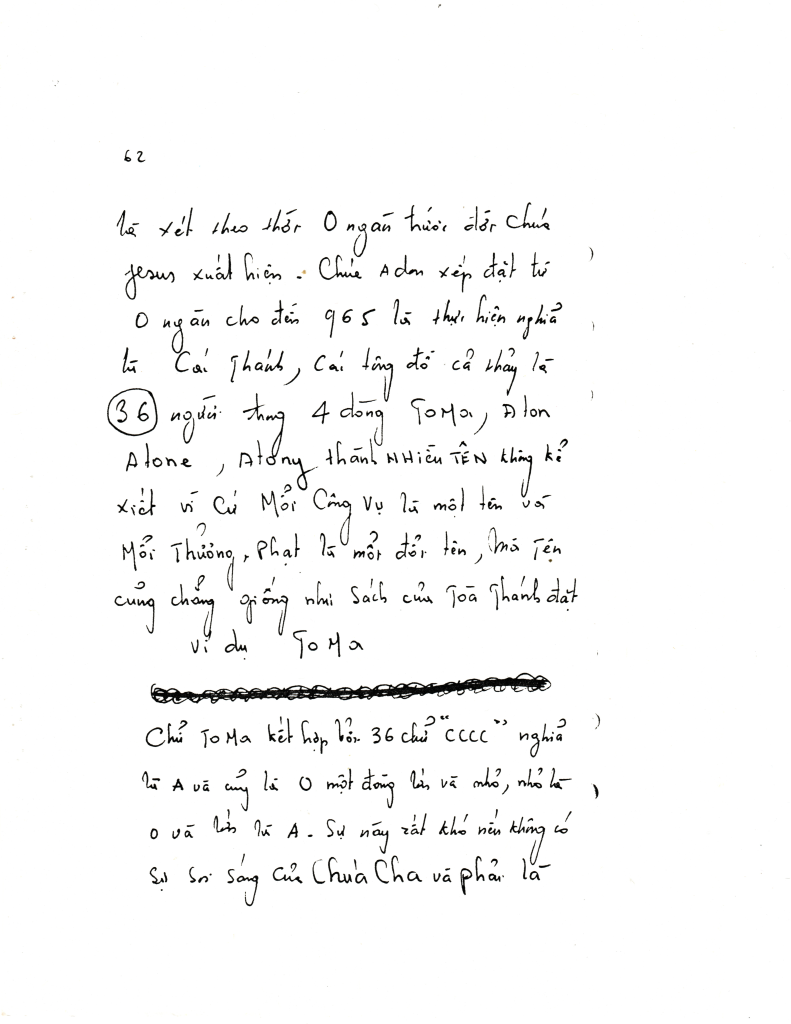 62
là xét theo thời 0 ngàn trước đời Chúa
Jesus xuất hiện. Chúa Adon xếp đặt từ
0 ngàn cho đến 965 là thực hiện nghỉa
là Các Thánh, Các tông đồ cả thảy là
36 người trong 4 dòng ToMa, Aton
Atone, Atony thành NHIỀU TÊN không kể
xiết vì Cứ Mổi Công Vụ là một tên và
Mổi Thưởng, Phạt là mổi đổi tên, Mà Tên
củng chẳng giống như Sách của Toà Thánh đặt
ví dụ ToMa
Chử ToMa kết hợp bởi 36 chử "CCCC" nghỉa
là A và củng là O một đồng lớn và nhỏ, nhỏ là
O và lớn là A. Sự nầy rất khó nếu không có
Sự Soi Sáng Của Chúa Cha và phải là